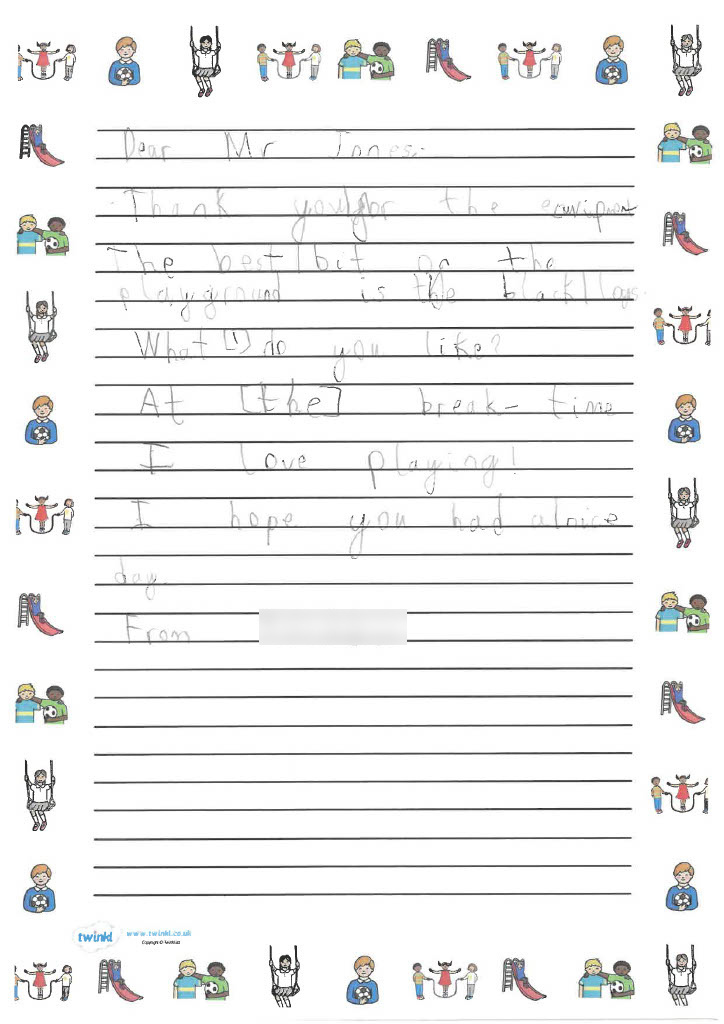 Dear Mr Jones.
Thank you for the
The best bit on the
playground is the black logs.
What [1] do you like?
At [the] break-time
I love playing!
I hope you had a nice
day.
From
twinkl www.twinkl.co.uk